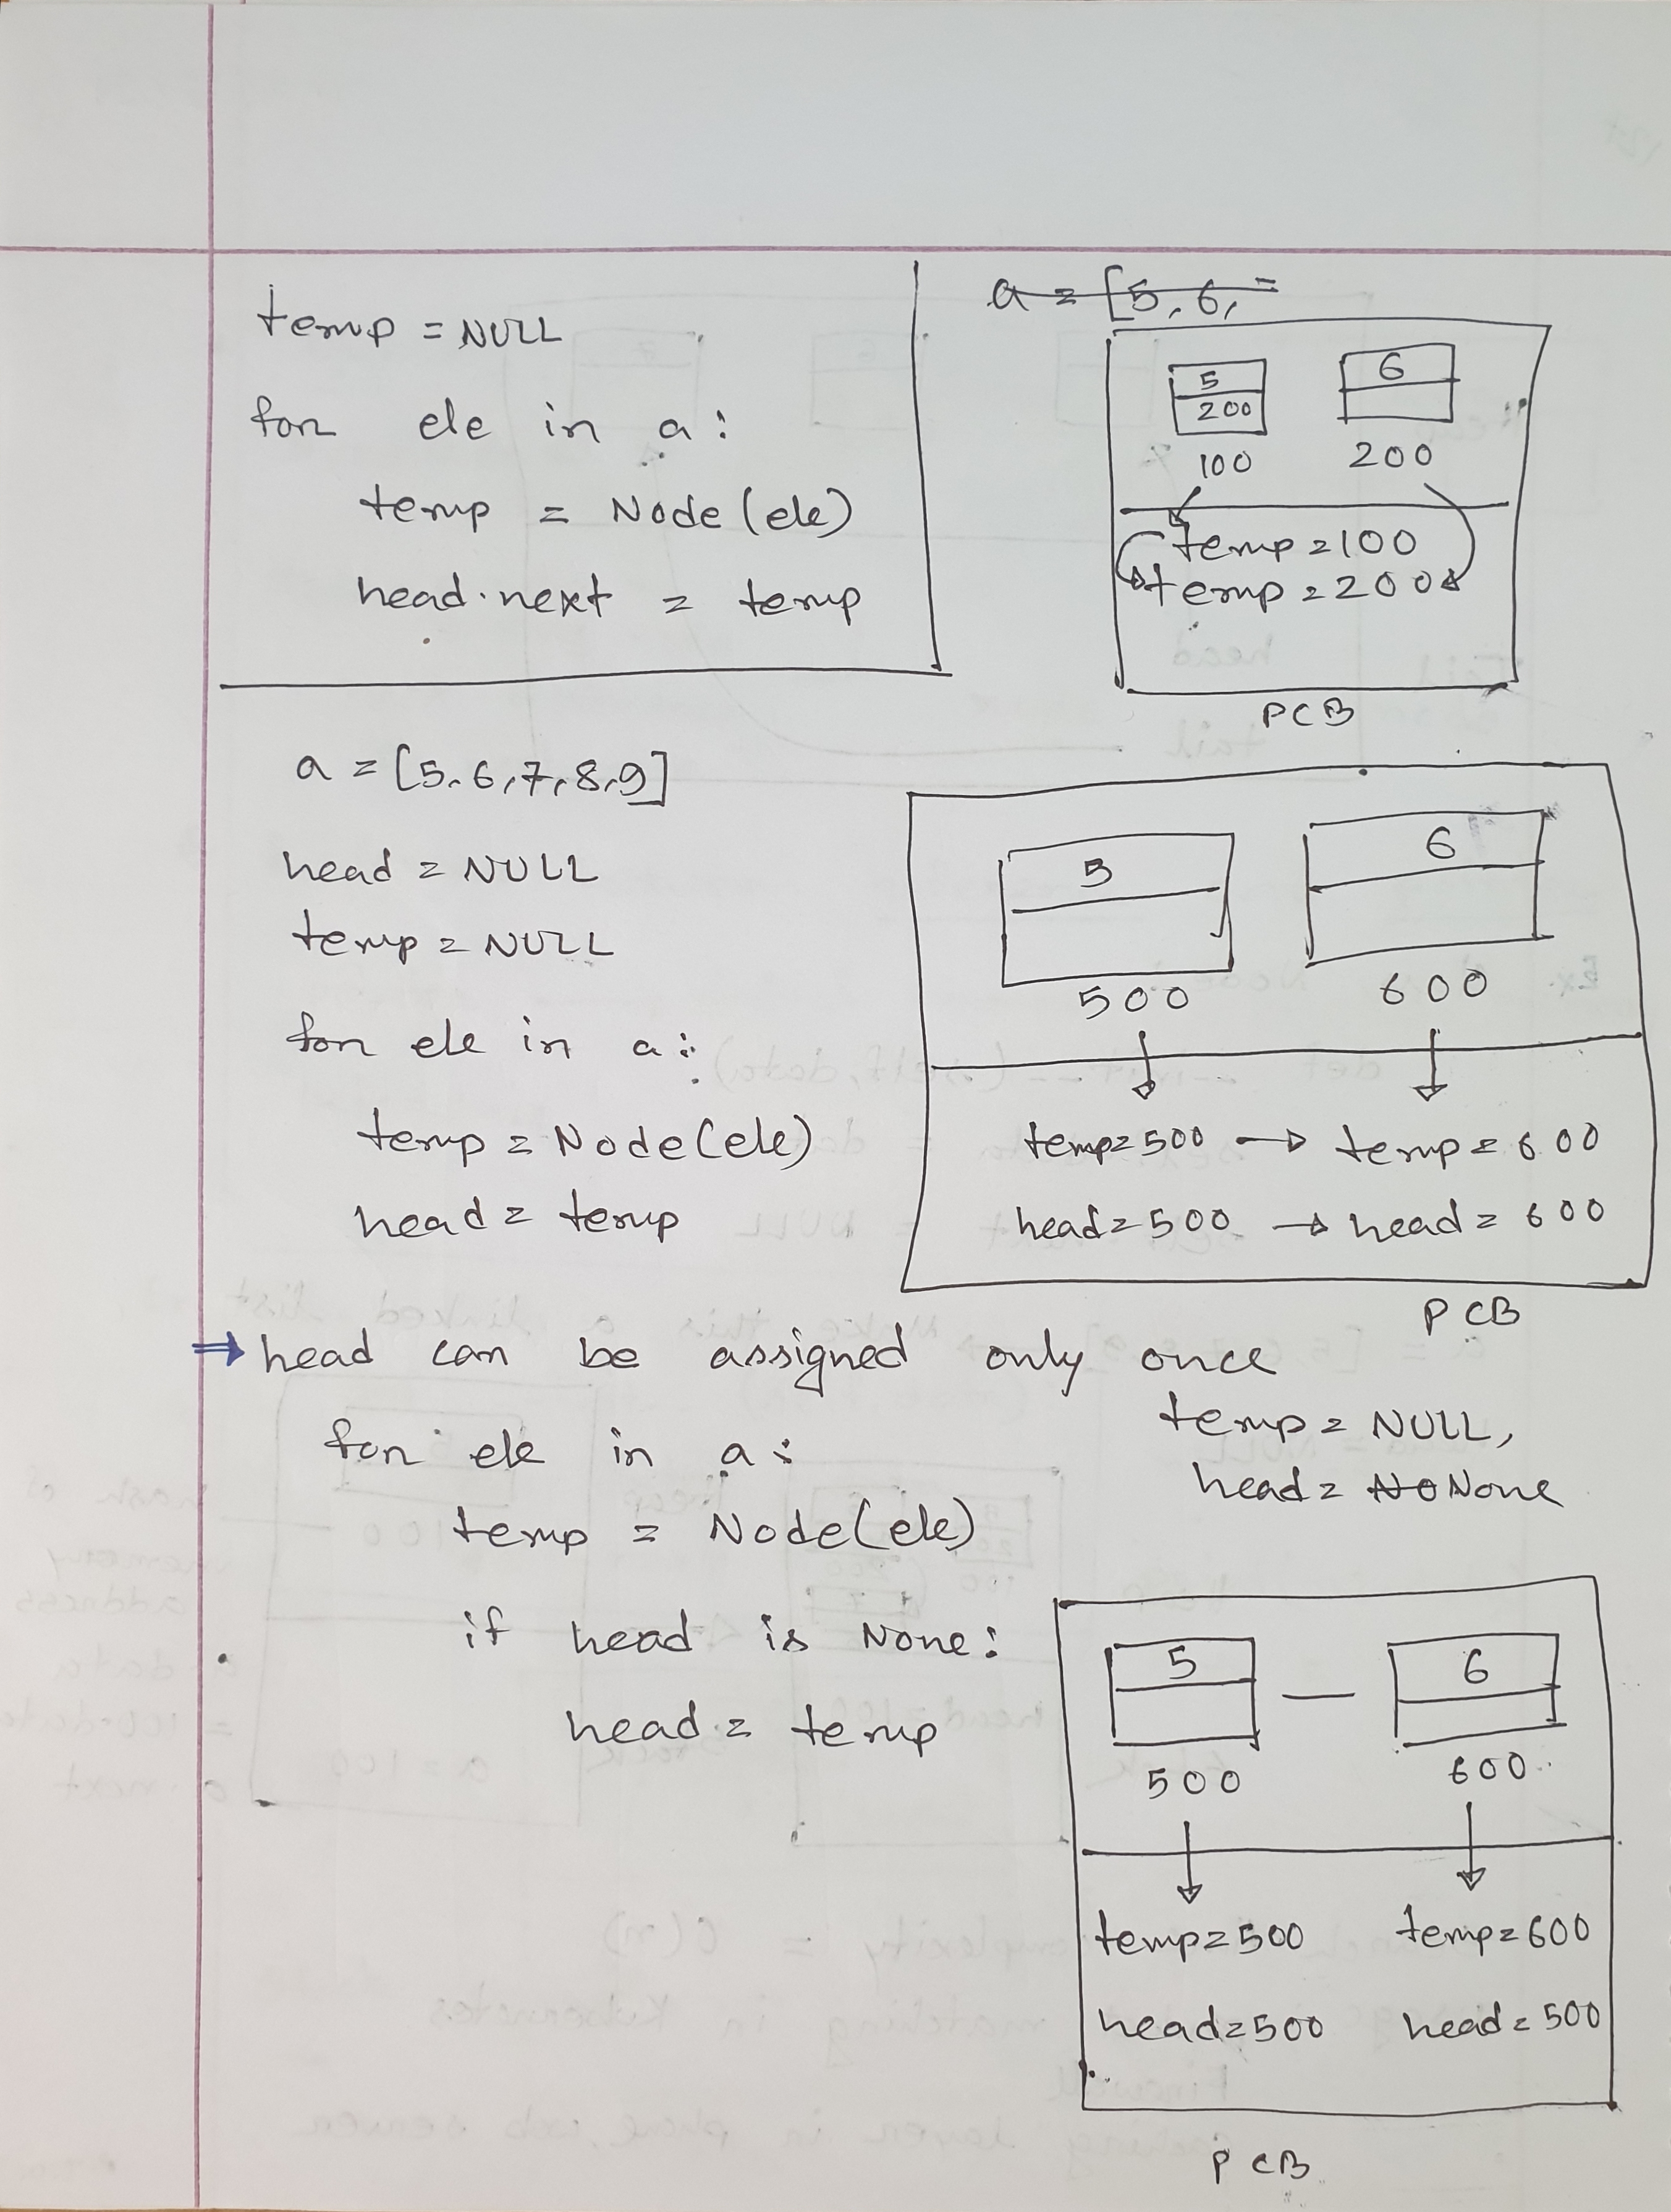 temp = NULL
for ele in a:
temp = Node (ele)
head.next = temp
a = [5, 6,
5
200
100
6
200
temp = 100
temp = 200
PCB
a = [5, 6, 7, 8, 9]
head = NULL
temp = NULL
for ele in a:
temp = Node(ele)
head = temp
5
6
500
600
temp = 500 → temp = 600
head = 500 → head = 600
PCB
⇒ head can be assigned only once
temp = NULL,
head = NO None
for ele in a:
temp = Node(ele)
if head is None:
head = temp
5 — 6
500
600
temp = 500 temp = 600
head = 500 head = 500
PCB